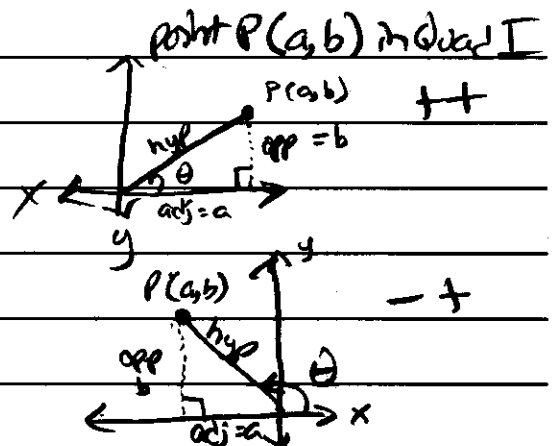 point P(a,b) in Quad I
P(a,b)
++
hyp
opp = b
θ
X
adj = a
y
y
P(a,b)
- +
hyp
opp
b
θ
x
adj = a